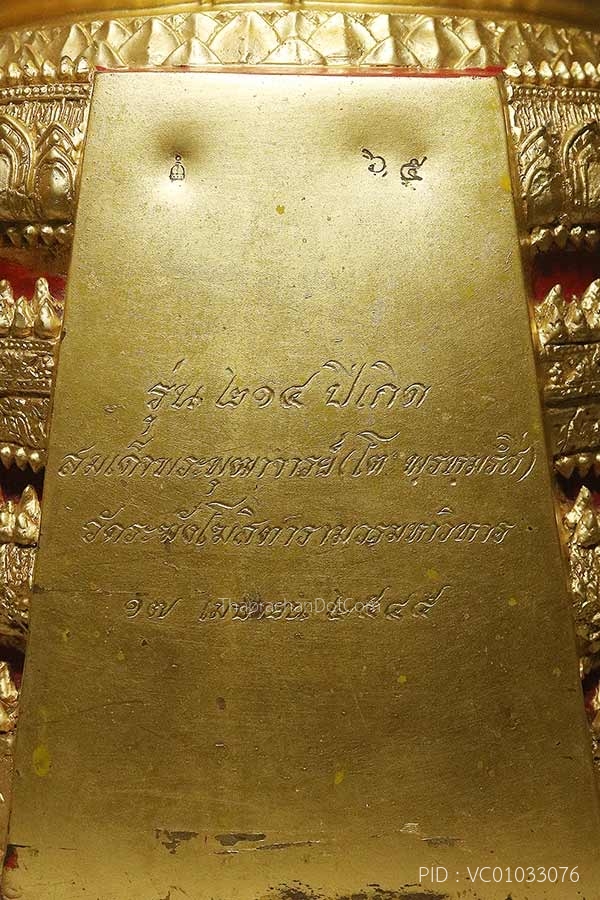 ๖ ๕
รุ่น ๒๑๔ ปีเกิด
สมเด็จพระพุฒาจารย์(โต พรหมรังสี)
วัดระฆังโฆสิตารามวรมหาวิหาร
๑๗ เมษายน ๒๕๔๕
ThaprachanDotCom
PID : VC01033076